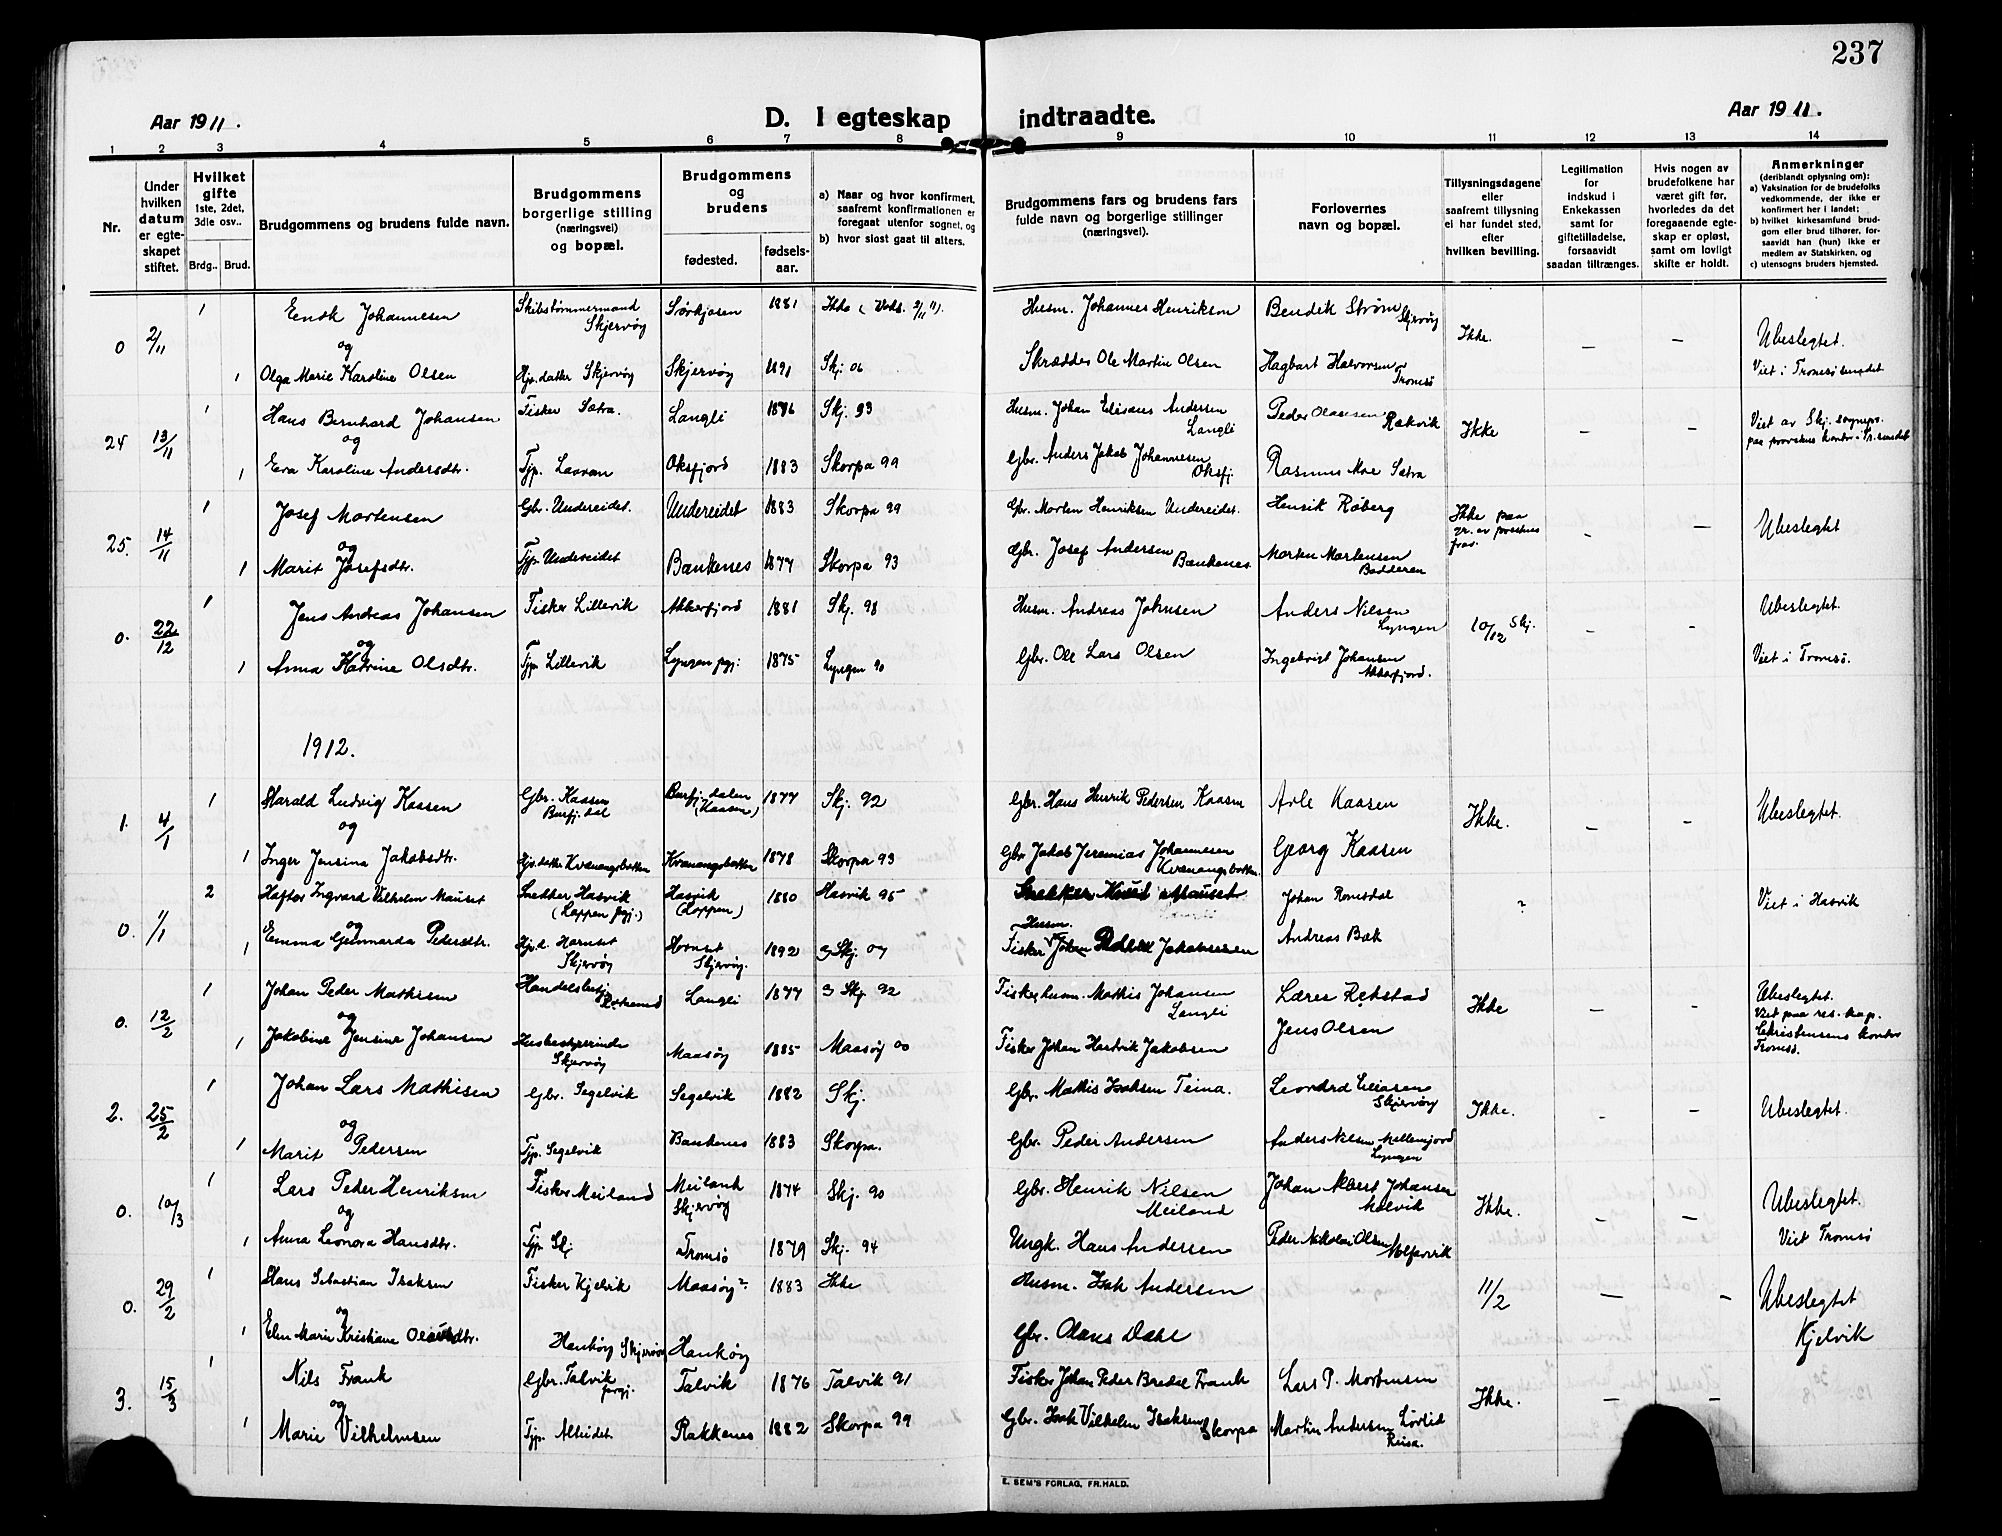 237
Aar 1911.
D. I egteskap indtraadte.
Aar 1911.
1 2 3 4 5 6 7 8 9 10 11 12 13 14
Nr.
Under hvilken datum er egteskapet stiftet.
Hvilket gifte 1ste, 2det, 3die osv..
Brdg.. Brud.
Brudgommens og brudens fulde navn.
Brudgommens borgerlige stilling (næringsvei) og bopæl.
Brudgommens og brudens
fødested.
fødselsaar.
a) Naar og hvor konfirmert, saafremt konfirmationen er foregaat utenfor sognet, og
b) hvor sidst gaat til alters.
Brudgommens fars og brudens fars fulde navn og borgerlige stillinger (næringsvei).
Forlovernes navn og bopæl.
Tillysningsdagene eller saafremt tillysning ei har fundet sted, efter hvilken bevilling.
Legitimation for indskud i Enkekassen samt for giftetilladelse, forsaavidt saadan tiltrænges.
Hvis nogen av brudefolkene har været gift før, hvorledes da det foregaaende egteskap er opløst, samt om lovligt skifte er holdt.
Anmerkninger (deriblandt oplysning om):
a) Vaksination for de brudefolks vedkommende, der ikke er konfirmert her i landet;
b) hvilket kirkesamfund brudgom eller brud tilhører, forsaavidt han (hun) ikke er medlem av Statskirken, og
c) utensogns bruders hjemsted.
0 2/11 1 Enok Johannesen Skibstømmermand Skjervøy Sørkjosen 1881 Ikke Husm. Johannes Henriksen Bendik Strøm Skjervøy Ikke. — — Ubeslegtet.
og
1 Olga Marie Karoline Olsen Hjv. datter Skjervøy Skjervøy 1891 Skj. 06 Skrædder Ole Martin Olsen Hagbart Halvorsen Tromsø Viet i Tromsøsundet
24 13/11 1 Hans Bernhard Johansen Fisker Sætra. Langli 1876 Skj. 93 Husm. Johan Elisæus Andersen Langli Peder Olaussen Rakvik Ikke — — Viet av Skj. sognepr. paa provstens kontor i Tr.sundet
og
1 Eva Karoline Andersdtr. Tjp. Lauvan Oksfjord 1883 Skorpa 99 Gbr. Anders Jakob Johannesen Oksfj. Rasmus Moe Sætra
25. 14/11 1 Josef Mortensen Gbr. Undereidet. Undereidet 1883 Skorpa 99 Gbr. Morten Henriksen Undereidet. Henrik Røberg Ikke paa gr. av prestens frav. - — Ubeslegtet
og
1 Marit Josefsdtr. Tjp. Undereidet Bankenes 1877 Skorpa 93 Gbr. Josef Andersen Bankenes Morten Mortensen Badderen
0. 22/12 1 Jens Andreas Johansen Fisker Lillevik Akkarfjord 1881 Skj. 98 Husm. Andreas Johnsen Anders Nilsen Lyngen 10/12 Skj. - - Ubeslegtet.
og
1 Anna Katrine Olsdtr. Tjp. Lillevik Lyngen pgj. 1875 Lyngen 90 Gbr. Ole Lars Olsen Ingebrigt Johansen Akkarfjord. Viet i Tromsø.
1912.
1. 4/1 1 Harald Ludvig Kaasen Gbr. Kaasen Burfj.dal Burfj.dalen (Kaasen) 1877 Skj. 92 Gbr. Hans Henrik Pedersen Kaasen Arle Kaasen Ikke. — — Ubeslegtet.
og
1 Inger Jensina Jakobsdtr. Hjv. datter Kvænangsbotten Kvænangsbotten 1878 Skorpa 93 Gbr. Jakob Jeremias Johannesen Kvænangsbotten. Georg Kaasen
0. 1/1 2 Haftor Ingvard Vilhelm Mauset Snedker Hasvik (Loppen pgj.) Hasvik (Loppen) 1880 Hasvik 95 Johan Romsdal ? Viet i Hasvik
og
1 Emma Gunnarda Pedersdtr. Hjv.d. Hornset Skjervøy Skjervøy. 1892 Skj. 07 Husm. Fisker Johan Peder Jakobsen Andreas Bæk
0. 12/2 1 Johan Peder Mathisen Handelsbetj. Langli 1877 Skj. 92 Fisker husm. Mathis Johansen Langli Lærer Rebstad Ikke — - Ubeslegtet.
og
1 Jakobine Jensine Johansen Husbestyrerinde Skjervøy Maasøy 1885 Maasøy 00 Fisker Johan Hartvik Jakobsen Jens Olsen Viet paa res. kap. Christensens kontor Tromsø.
2. 25/2 1 Johan Lars Mathisen Gbr. Segelvik Segelvik 1882 Skj. Gbr. Mathis Isaksen Teina. Leonard Eliasen Skjervøy Ikke. - — Ubeslegtet.
og
1 Marit Pedersen Tjp. Segelvik Bankenes 1883 Skorpa. Gbr. Peder Andersen Anders Nilsen Mellemjord Lyngen
0. 10/3 1 Lars Peder Henriksen Fisker Meiland Meiland Skjervøy 1874 Skj. 90 Gbr. Henrik Nilsen Meiland Johan Albert Johansen Malvik Ikke. — — Ubeslegtet.
og
1 Anna Leonora Hansdtr. Tjp. Skj Tromsø 1879 Skj. 94 Ungk. Hans Andersen Peder Nikolai Olsen Viet Tromsø
0. 29/2 1 Hans Sebastian Isaksen Fisker Kjelvik Maasøy? 1883 Ikke Husm. Isak Andersen 11/2 — — Ubeslegtet
og
1 Elen Marie Kristiane Olausdtr. Haukøy Skjervøy Haukøy Gbr. Olaus Dahl Kjelvik
3. 15/3 1 Nils Frank Gbr. Talvik prgj. Talvik 1876 Talvik 91 Fisker Johan Peder Bredal Frank Lars P. Mortensen Ikke. — — Ubeslegtet.
og
1 Marie Vilhelmsen Tjp. Alteidet Rakkenes 1882 Skorpa 99 Gbr. Isak Vilhelm Isaksen Skorpa Martin Andersen Reisa.
E. SEM'S FORLAG, FR.HALD.